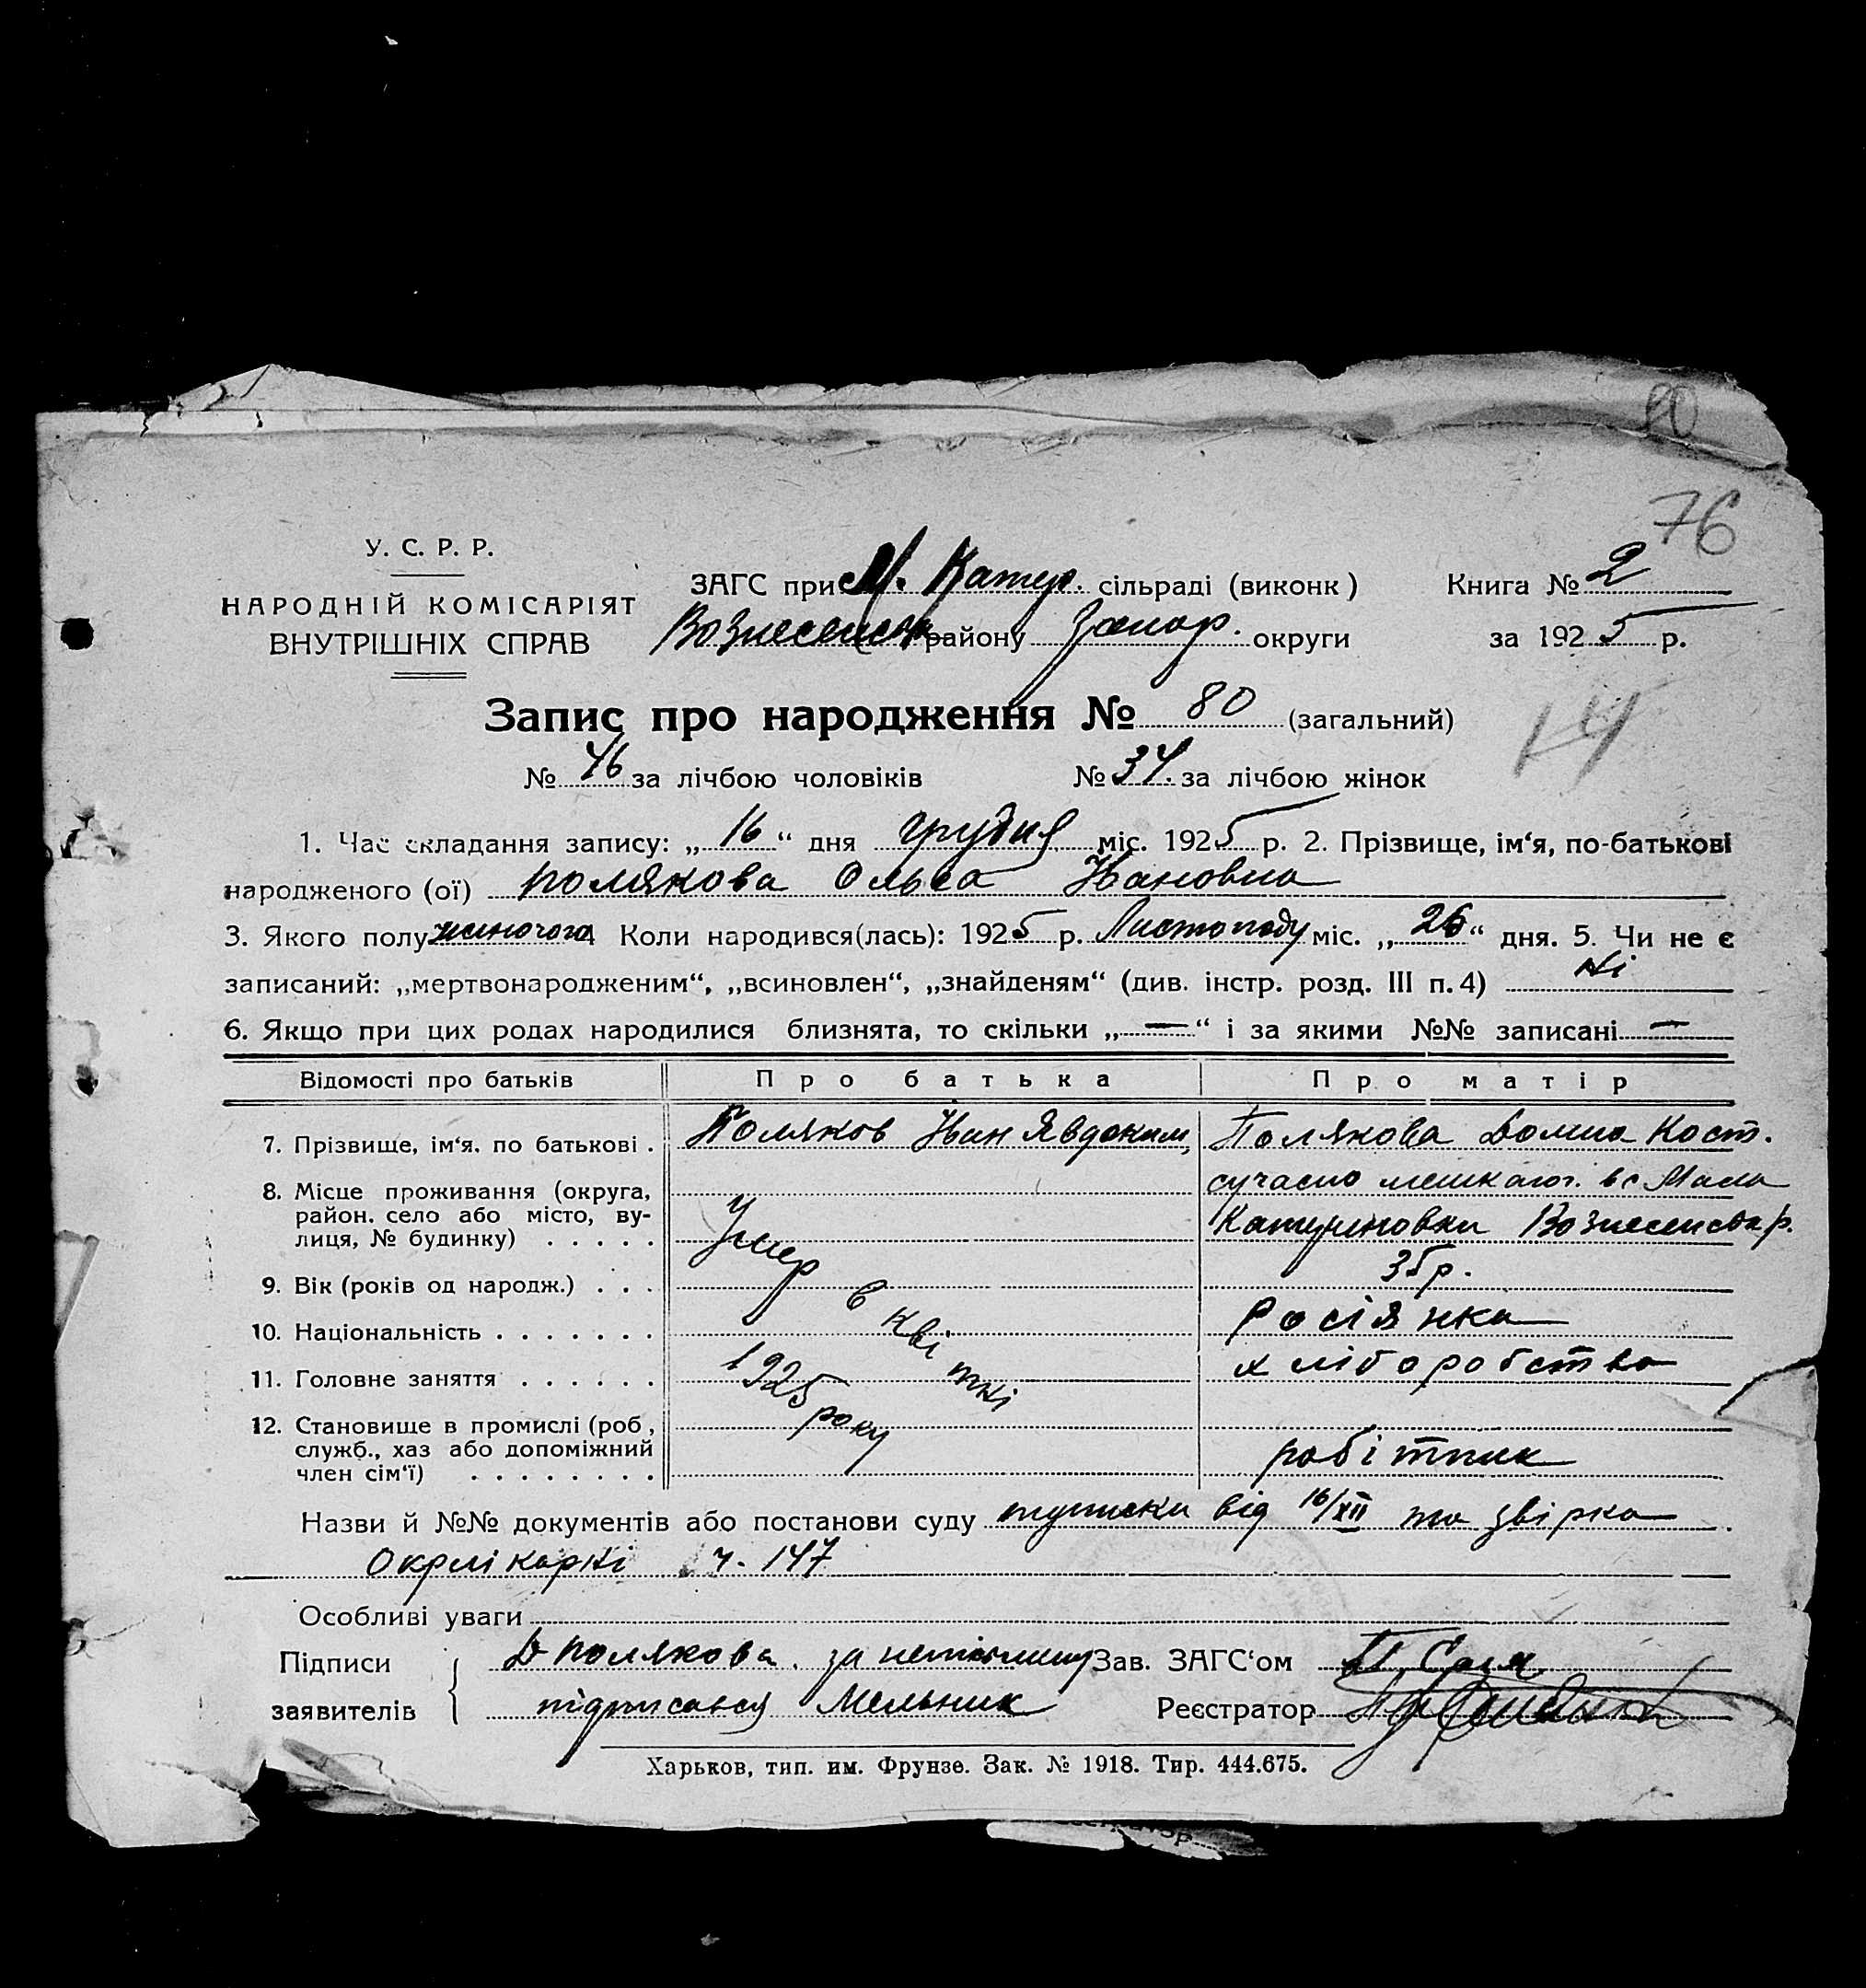 80
76
У. С. Р. Р.
НАРОДНІЙ КОМІСАРІЯТ
ВНУТРІШНІХ СПРАВ
ЗАГС при М. Катер. сільраді (виконк) Книга № 2
Вознесенськ району Запор. округи за 1925 р.
Запис про народження № 80 (загальний)
№ 46 за лічбою чоловіків № 34. за лічбою жінок
1. Час складання запису: „16“ дня грудня міс. 1925 р. 2. Прізвище, ім‘я, по-батькові
народженого (ої) Полякова Ольга Ивановна
3. Якого полу жиночого 4 Коли народився(лась): 1925 р. Листопаду міс. „26“ дня. 5. Чи не є
записаний: „мертвонародженим“, „всиновлен“, „знайденям“ (див. інстр. розд. III п. 4) Ні
6. Якщо при цих родах народилися близнята, то скільки „—“ і за якими №№ записані —
Відомості про батьків Про батька Про матір
7. Прізвище, ім‘я, по батькові . Поляков Иван Явдоким, Полякова Домна Кост.
8. Місце проживання (округа, район. село або місто, ву-лиця, № будинку) . . . . . сучасно мешкает. в с Мала
Катериновки Вознесенська р.
9. Вік (років од народж.) . . . 35 р.
10. Національність . . . . . . . росіянка
11. Головне заняття . . . . . . хліборобство
12. Становище в промислі (роб, служб., хаз або допоміжний член сім‘ї) . . . . . . . . робітник
Умер в квітні
1925 року
Назви й №№ документів або постанови суду від 16/XII та звірка
ч. 147
Особливі уваги
Підписи Д Полякова. за неписьмену Зав. ЗАГС‘ом
заявителів підписався Мельник Реєстратор
Харьков, тип. им. Фрунзе. Зак. № 1918. Тир. 444.675.